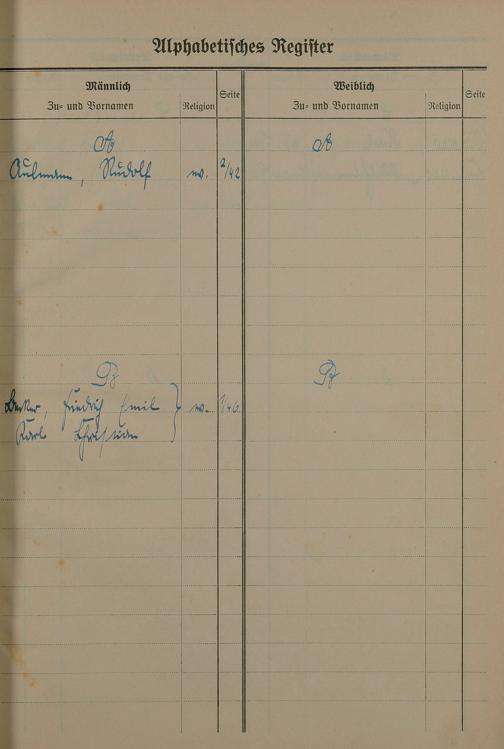 Alphabetisches Register
Männlich
Zu- und Vornamen
Religion
Seite
Weiblich
Zu- und Vornamen
Religion
Seite
A
A
Aulmann, Rudolf ev. 2/42
B
B
Becker, Friedrich Emil ev. 1/46.
Karl Christian